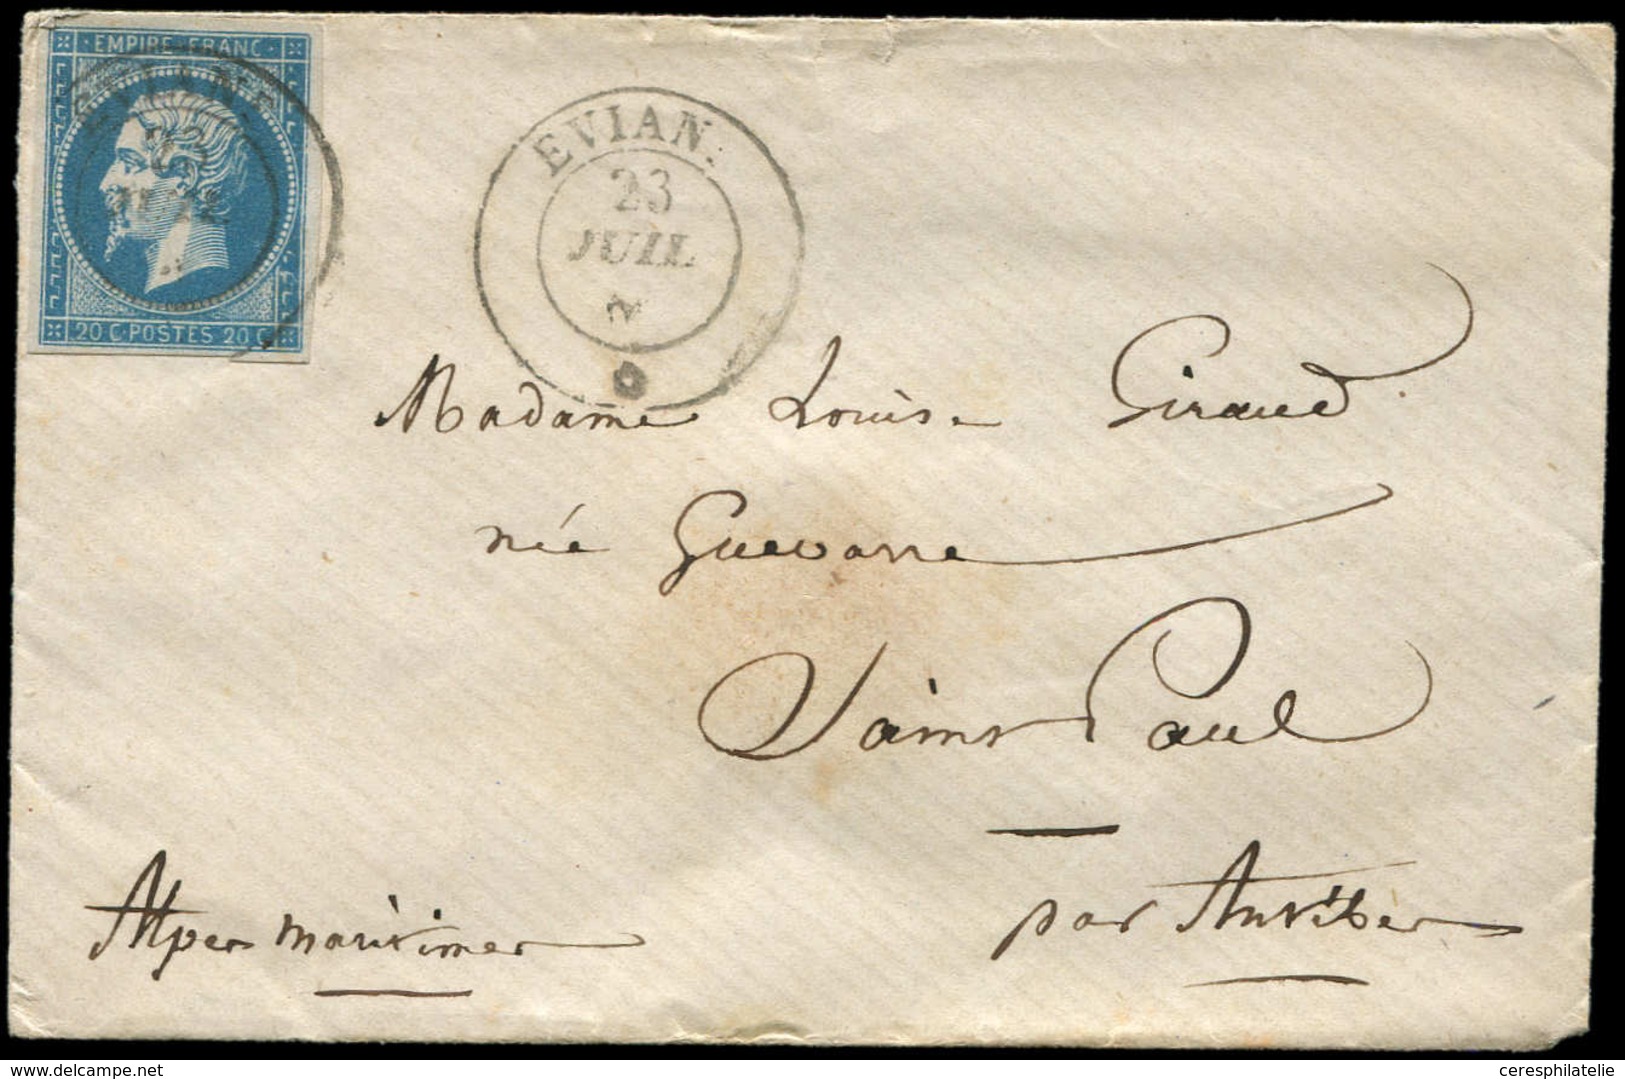 EMPIRE FRANC
EVIAN
23
JUIL
20 C POSTES 20 C
EVIAN.
23
JUIL
Madame Louise Giraud
née Guevarre
Saint Paul
par Antibes
Alpes maritimes
www.delcampe.net
ceresphilatelie